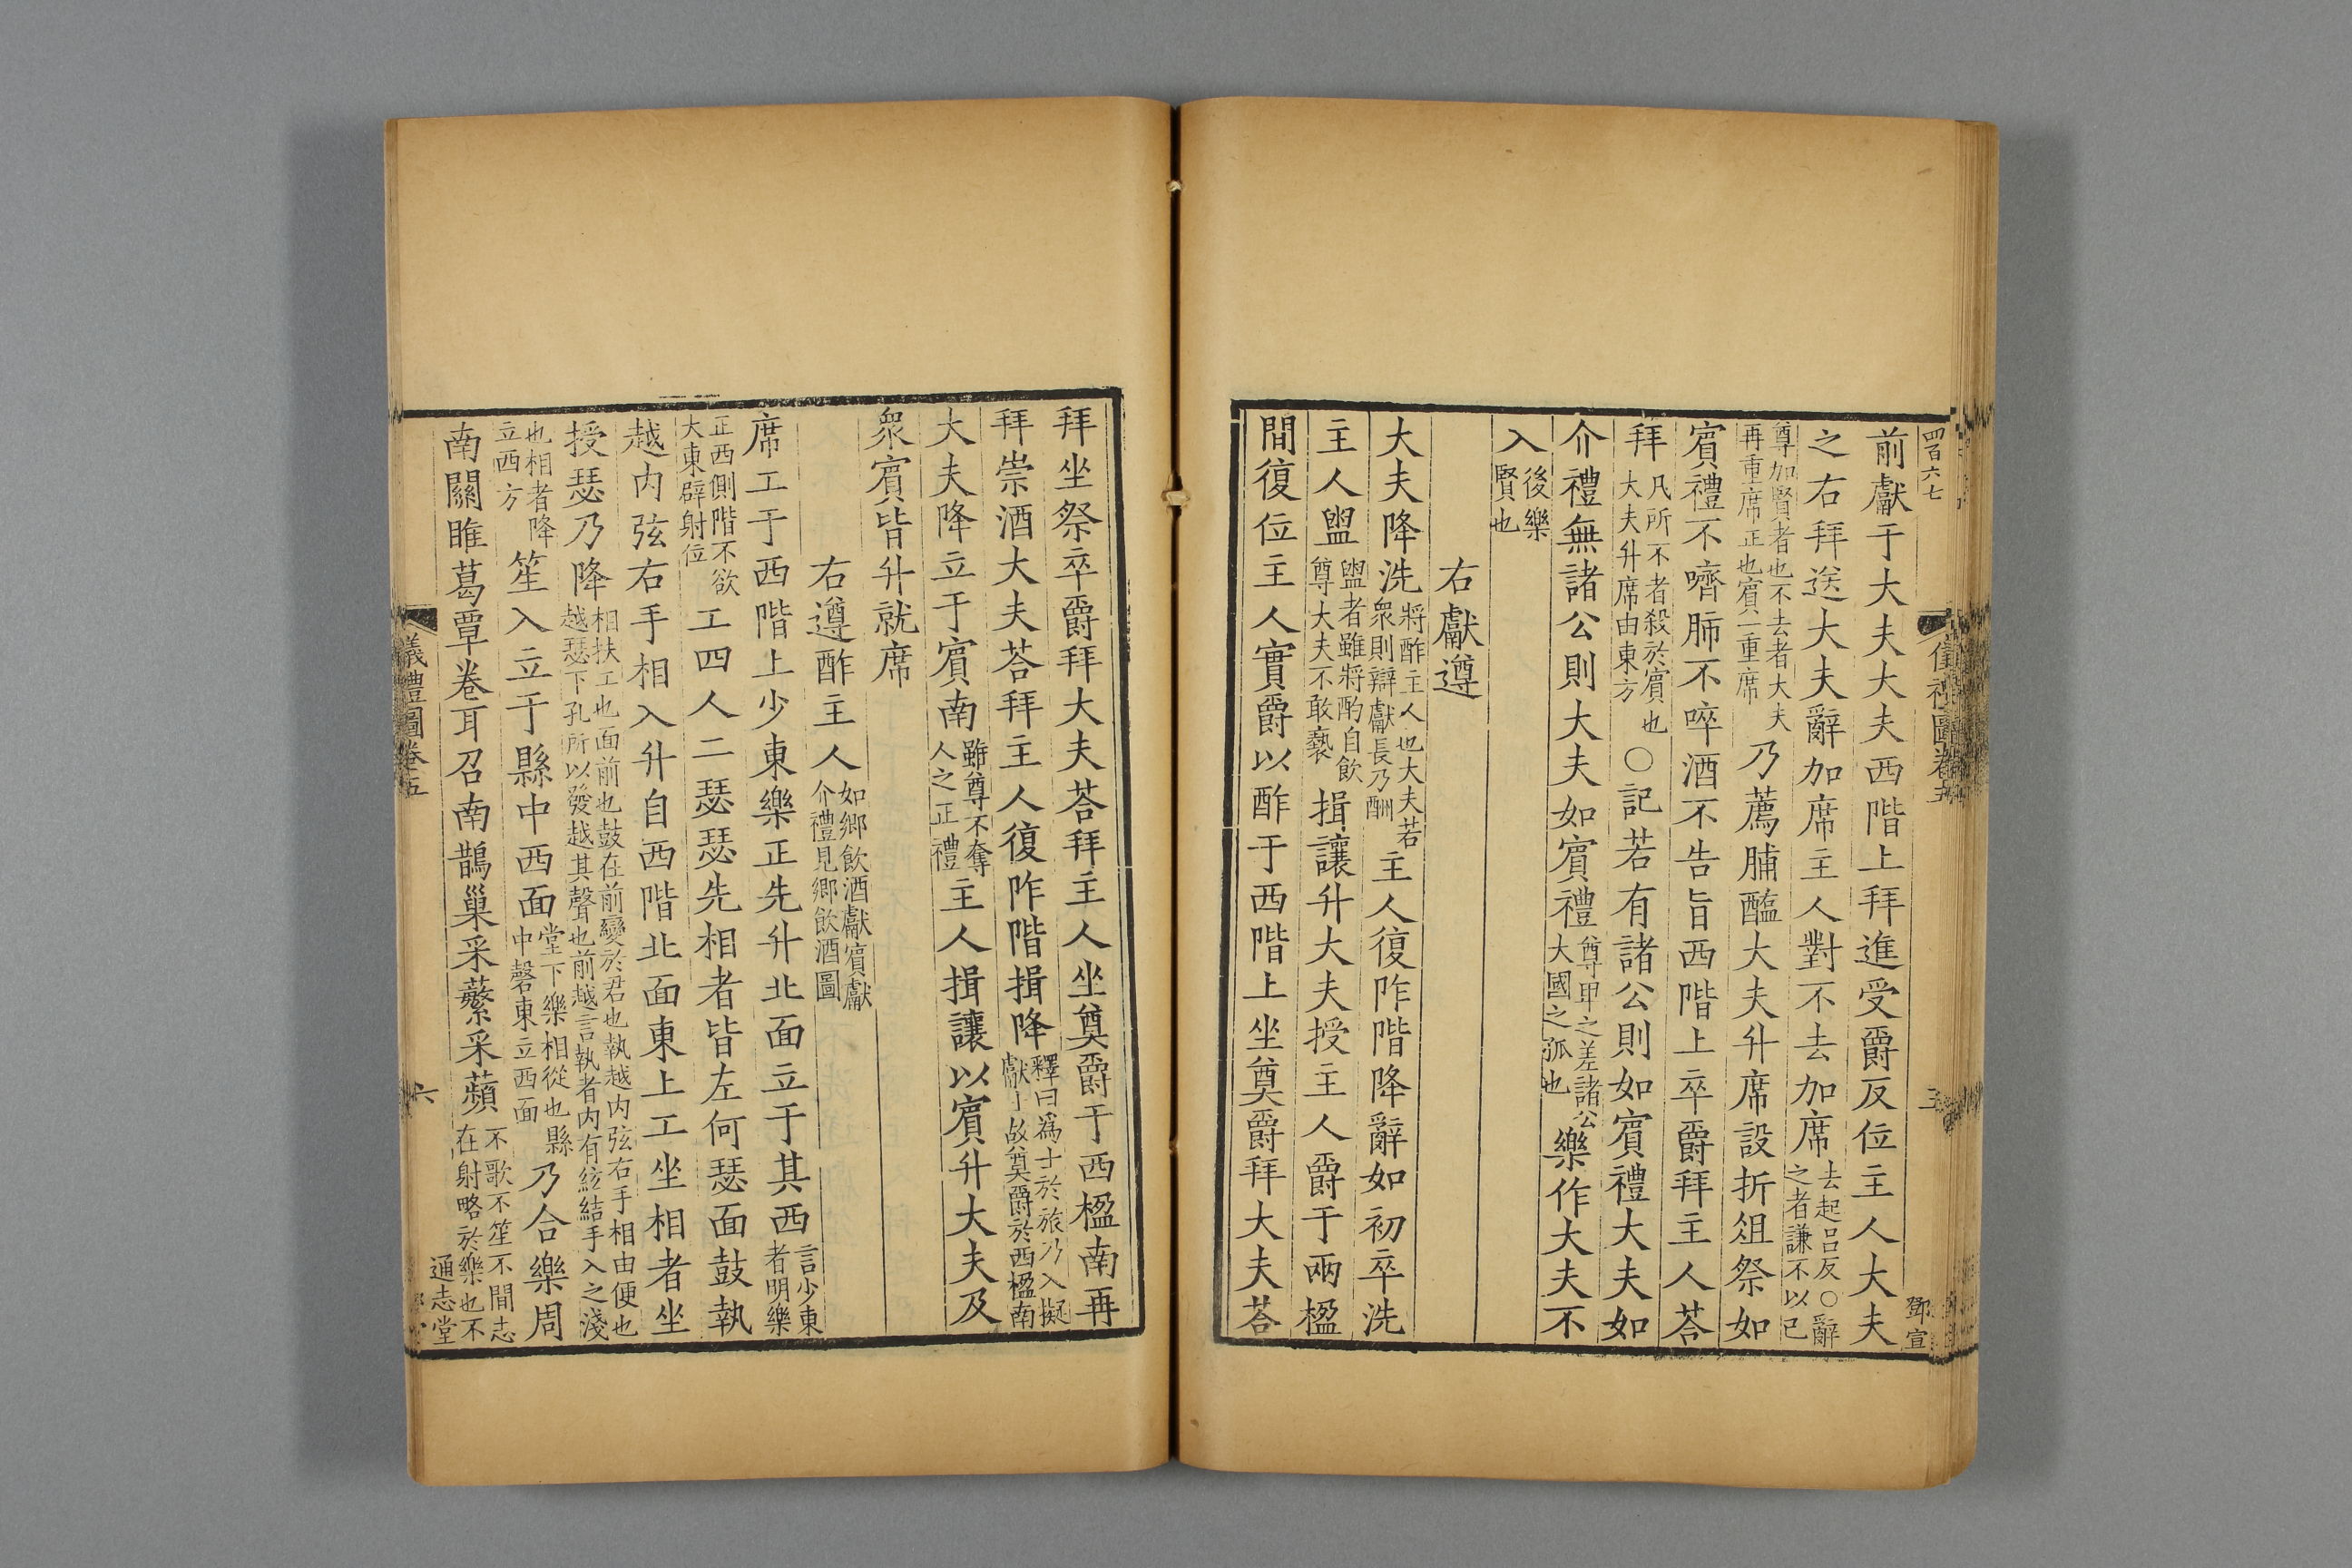 四百六七
儀禮圖卷五
五
鄧宣
前獻于大夫大夫西階上拜進受爵反位主人大夫
之右拜送大夫辭加席主人對不去加席去起呂反○辭之者謙不以己
尊加賢者也不去者大夫再重席正也賓一重席乃薦脯醢大夫升席設折俎祭如
賓禮不嚌肺不啐酒不告旨西階上卒爵拜主人荅
拜凡所不者殺於賓也大夫升席由東方○記若有諸公則如賓禮大夫如
介禮無諸公則大夫如賓禮尊卑之差諸公大國之孤也樂作大夫不
入後樂賢也
右獻遵
大夫降洗將酢主人也大夫若衆則辯獻長乃酬主人復阼階降辭如初卒洗
主人盥盥者雖將酌自飲尊大夫不敢褻揖讓升大夫授主人爵于兩楹
間復位主人實爵以酢于西階上坐奠爵拜大夫荅
拜坐祭卒爵拜大夫荅拜主人坐奠爵于西楹南再
拜崇酒大夫荅拜主人復阼階揖降釋曰爲士於旅乃入擬獻士故奠爵於西楹南
大夫降立于賓南雖尊不奪人之正禮主人揖讓以賓升大夫及
衆賓皆升就席
右遵酢主人如鄉飲酒獻賓獻介禮見鄉飲酒圖
席工于西階上少東樂正先升北面立于其西言少東者明樂
正西側階不欲大東辟射位工四人二瑟瑟先相者皆左何瑟面鼓執
越内弦右手相入升自西階北面東上工坐相者坐
授瑟乃降相扶工也面前也鼓在前變於君也執越内弦右手相由便也越瑟下孔所以發越其聲也前越言執者内有絃結手入之淺
也相者降立西方笙入立于縣中西面堂下樂相從也縣中磬東立西面乃合樂周
南關雎葛覃卷耳召南鵲巢采蘩采蘋不歌不笙不間志在射略於樂也不
儀禮圖卷五
六
通志堂